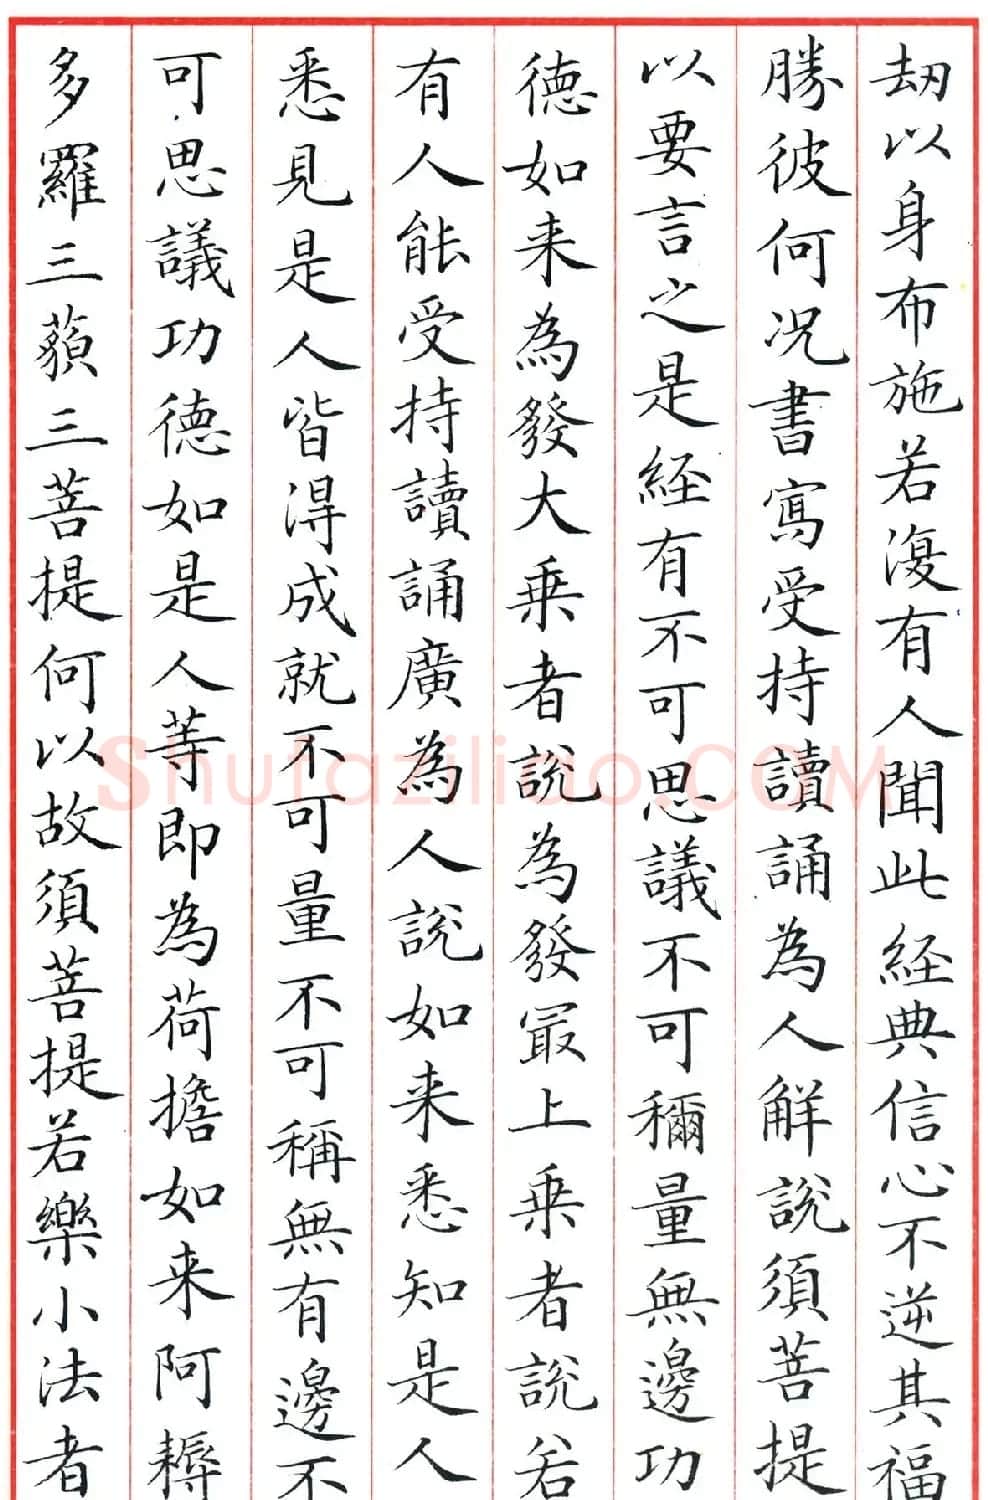 劫以身布施若復有人聞此経典信心不逆其福
勝彼何况書寫受持讀誦為人解説須菩提
以要言之是経有不可思議不可稱量無邊功
徳如来為發大乗者説為發冣上乗者説若
有人能受持讀誦廣為人説如来悉知是人
悉見是人皆得成就不可量不可稱無有邊不
可思議功徳如是人等即為荷擔如来阿耨
多羅三藐三菩提何以故須菩提若樂小法者
Shufaziliao.COM